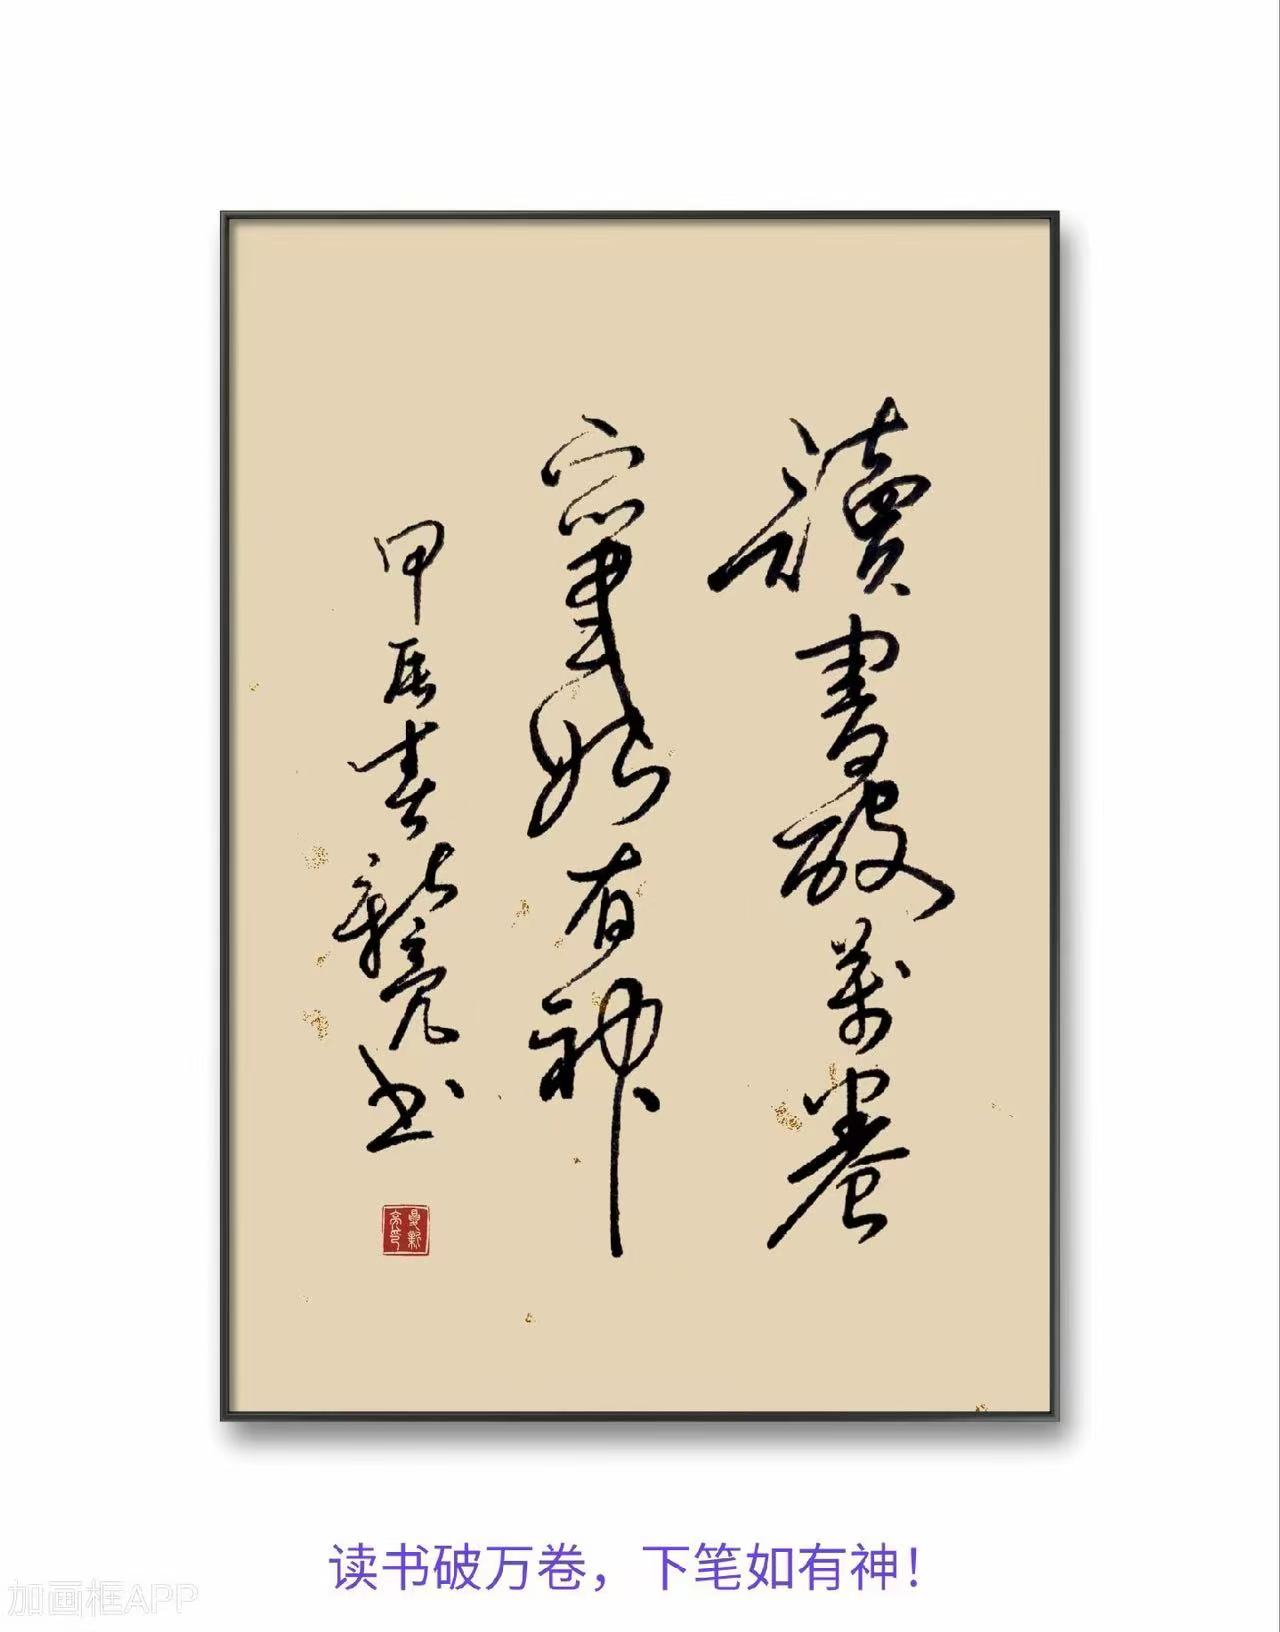 讀書破萬卷
下筆如有神
甲辰春新亮书
读书破万卷，下笔如有神！
加画框APP